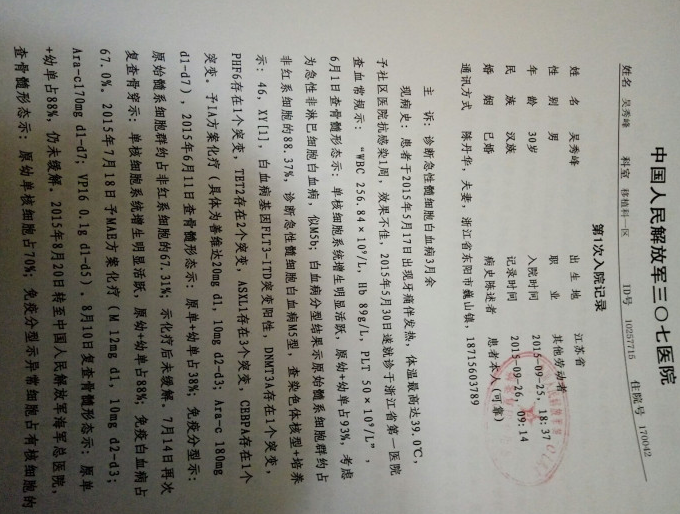 中国人民解放军三〇七医院
姓名 吴秀峰 科室 移植科一区 ID号 10257715 住院号 170042
第1次入院记录
姓 名 吴秀峰 出 生 地 江苏省
性 别 男 职 业 其他劳动者
年 龄 30岁 入院时间 2015-09-25, 18:37
民 族 汉族 记录时间 2015-09-26, 09:14
婚 姻 已婚 病史陈述者 患者本人(可靠)
通讯方式 陈丹华, 夫妻, 浙江省东阳市巍山镇, 18715603789
主 诉: 诊断急性髓细胞白血病3月余
现病史: 患者于2015年5月17日出现牙痛伴发热, 体温最高达39.0℃,
予社区医院抗感染1周, 效果不佳, 2015年5月30日遂就诊于浙江省第一医院
查血常规示: “WBC 256.84×10⁹/L, Hb 89g/L, PLT 50×10⁹/L”,
6月1日查骨髓形态示: 单核细胞系统增生明显活跃, 原幼+幼单占93%, 考虑
为急性非淋巴细胞白血病, 似M5b; 白血病分型结果示原始髓系细胞群约占
非红系细胞的88.37%, 诊断急性髓细胞白血病M5型, 查染色体核型+培养
示: 46, XY[1], 白血病基因FLT3-ITD突变阳性, DNMT3A存在1个突变,
PHF6存在1个突变, TET2存在2个突变, ASXL1存在3个突变, CEBPA存在1个
突变。予IA方案化疗 (具体为善唯达20mg d1, 10mg d2-d3; Ara-c 180mg
d1-d7), 2015年6月11日查骨髓形态示: 原单+幼单占38%; 免疫分型示:
原始髓系细胞群约占非红系细胞的67.31%; 示化疗后未缓解。7月14日再次
复查骨穿示: 单核细胞系统增生明显活跃, 原幼+幼单占88%; 免疫白血病占
67.0%。2015年7月18日予MAE方案化疗 (M 12mg d1, 10mg d2-d3;
Ara-c170mg d1-d7; VP16 0.1g d1-d5), 8月10日复查骨髓形态示: 原单
+幼单占88%, 仍未缓解。2015年8月20日转至中国人民解放军海军总医院,
查骨髓形态示: 原幼单核细胞占70%; 免疫分型示异常细胞占有核细胞的